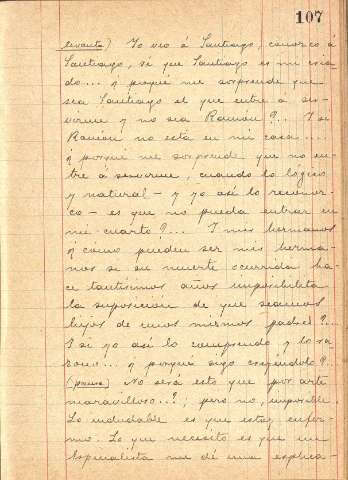 107
levanta) Yo veo á Santiago, conozco á
Santiago, sé que Santiago es mi cria
do... ¿y porqué me sorprende que
sea Santiago el que entre á ser-
virme y no sea Ramón?... Y si
Ramón no está en mi casa....
¿y porque me sorprende que no en-
tre á servirme, cuando lo lógico
y natural - y yo así lo reconoz-
co - es que no pueda entrar en
mi cuarto?... Y mis hermanos
¿y como pueden ser mis herma-
nos si su muerte ocurrida ha-
ce tantísimos años imposibilita
la suposición de que seamos
hijos de unos mismos padres?...
Y si yo así lo comprendo y lo ra
zono... ¿y porqué sigo creyéndolo?...
(pausa) No será esto que por arte
maravilloso...?; pero no, imposible.
Lo indudable es que estoy enfer-
mo. Lo que necesito es que un
especialista me dé una explica-